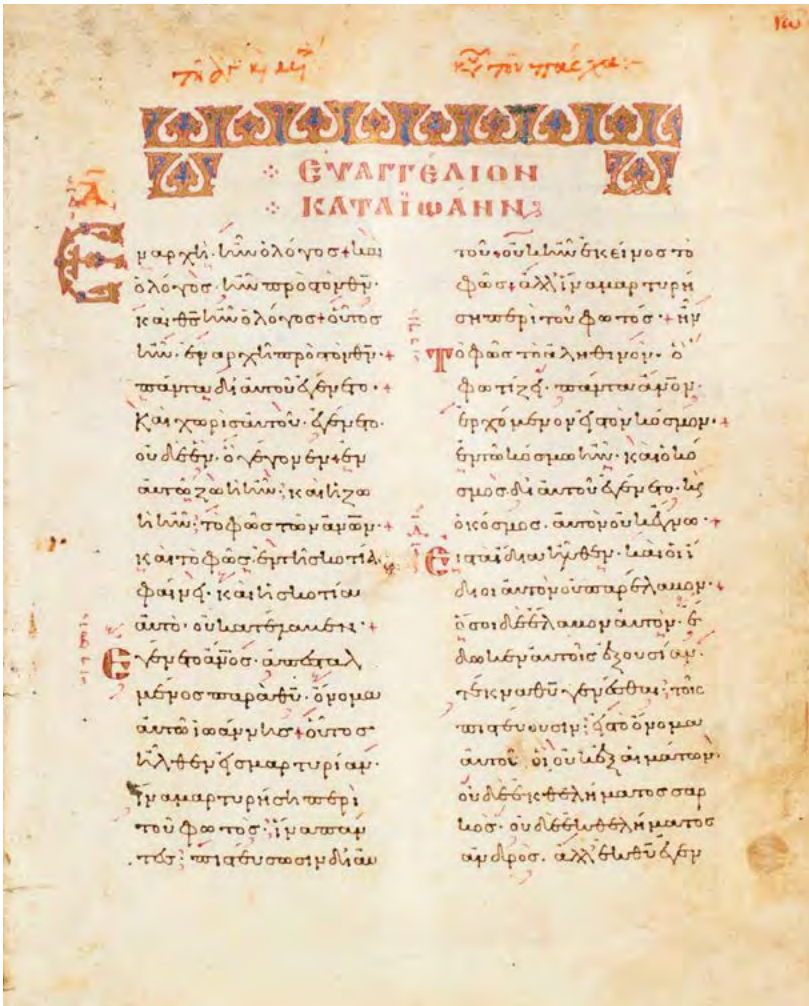 τοῦ πάσχα:-
ΕΥΑΓΓΕΛΙΟΝ
ΚΑΤΑ ΪΩΑΝΝ
Ἐν ἀρχῆ· ἦν ὁ λόγος + καὶ
ὁ λόγος· ἦν πρὸς τὸν θ̅ν̅·
καὶ θ̅ς̅ ἦν ὁ λόγος + οὗτος
ἦν· ἐν ἀρχῆ πρὸς τὸν θ̅ν̅· +
πάντα δι αὐτοῦ ἐγένετο· +
Καὶ χωρὶς αὐτοῦ· ἐγένετο·
οὐδὲ ἕν· ὃ γέγονεν + ἐν
αὐτῶ ζωὴ ἦν; καὶ ἡ ζω
ὴ ἦν; τὸ φῶς τῶν α̅ν̅ω̅ν̅· +
καὶ τὸ φῶς· ἐν τῆ σκοτία
φαίνει· καὶ ἡ σκοτία
αὐτὸ· οὐ κατέλαβεν· +
Ἐγένετο α̅ν̅ο̅ς̅· ἀπεσταλ
μένος παρὰ θ̅υ̅· ὄνομα
αὐτῶ ἰωάννης + οὗτος
ἦλθεν εἰς μαρτυρίαν·
ἵνα μαρτυρήση περὶ
τοῦ φωτός; ἵνα πάν
τες; πιστεύσωσιν δι αὐ
τοῦ + οὐκ ἦν ἐκεῖνος τὸ
φῶς + ἀλλ ἵνα μαρτυρή
ση περὶ τοῦ φωτός· + ἦν
Τὸ φῶς τὸ ἀληθινὸν· ὃ
φωτίζει· πάντα α̅ν̅ο̅ν̅·
ἐρχόμενον εἰς τὸν κόσμον· +
ἐν τῶ κόσμω ἦν· καὶ ὁ κό
σμος δι αὐτοῦ ἐγένετο· κ̀
ὁ κόσμος· αὐτὸν οὐκ ἔγνω· +
Εἰς τὰ ἴδια ἦλθεν· καὶ οἱ ἴ
διοι αὐτὸν οὐ παρέλαβον· +
ὅσοι δὲ ἔλαβον αὐτὸν· ἔ
δωκεν αὐτοῖς ἐξουσίαν·
τέκνα θ̅υ̅ γενέσθαι; τοῖς
πιστεύουσιν; εἰς τὸ ὄνομα
αὐτοῦ· οἳ οὐκ ἐξ αἱμάτων·
οὐδὲ ἐκ θελήματος σαρ
κὸς· οὐδὲ ἐκ θελήματος
ἀνδρὸς· ἀλλ ἐκ θ̅υ̅ ἐγεν